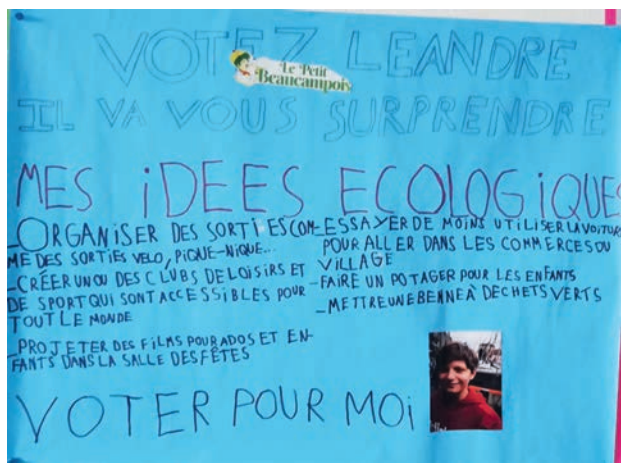 VOTEZ LEANDRE
Le Petit
Beaucampois
IL VA VOUS SURPRENDRE
MES iDEES ECOLOGiQUES
_ORGANISER DES SORTIES COM-
ME DES SORTIES VELO, PIQUE-NIQUE...
_CRÉER UN OU DES CLUBS DE LOISIRS ET
DE SPORT QUI SONT ACCESSIBLES POUR
TOUT LE MONDE
_PROJETER DES FILMS POUR ADOS ET EN-
FANTS DANS LA SALLE DES FÊTES
_ESSAYER DE MOINS UTILISER LA VOITURE
POUR ALLER DANS LES COMMERCES DU
VILLAGE
_FAIRE UN POTAGER POUR LES ENFANTS
_METTRE UNE BENNE À DECHETS VERTS
VOTER POUR MOi